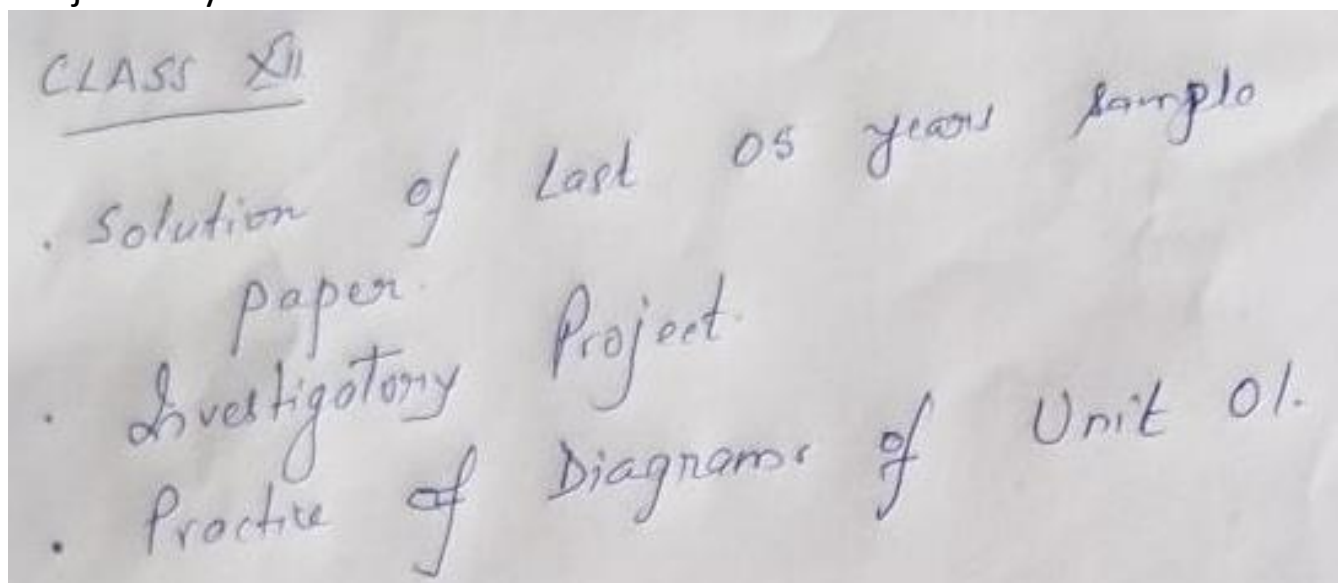 CLASS XII
. Solution of Last 05 years sample
paper.
. Investigatory Project.
. Practice of Diagrams of Unit 01.